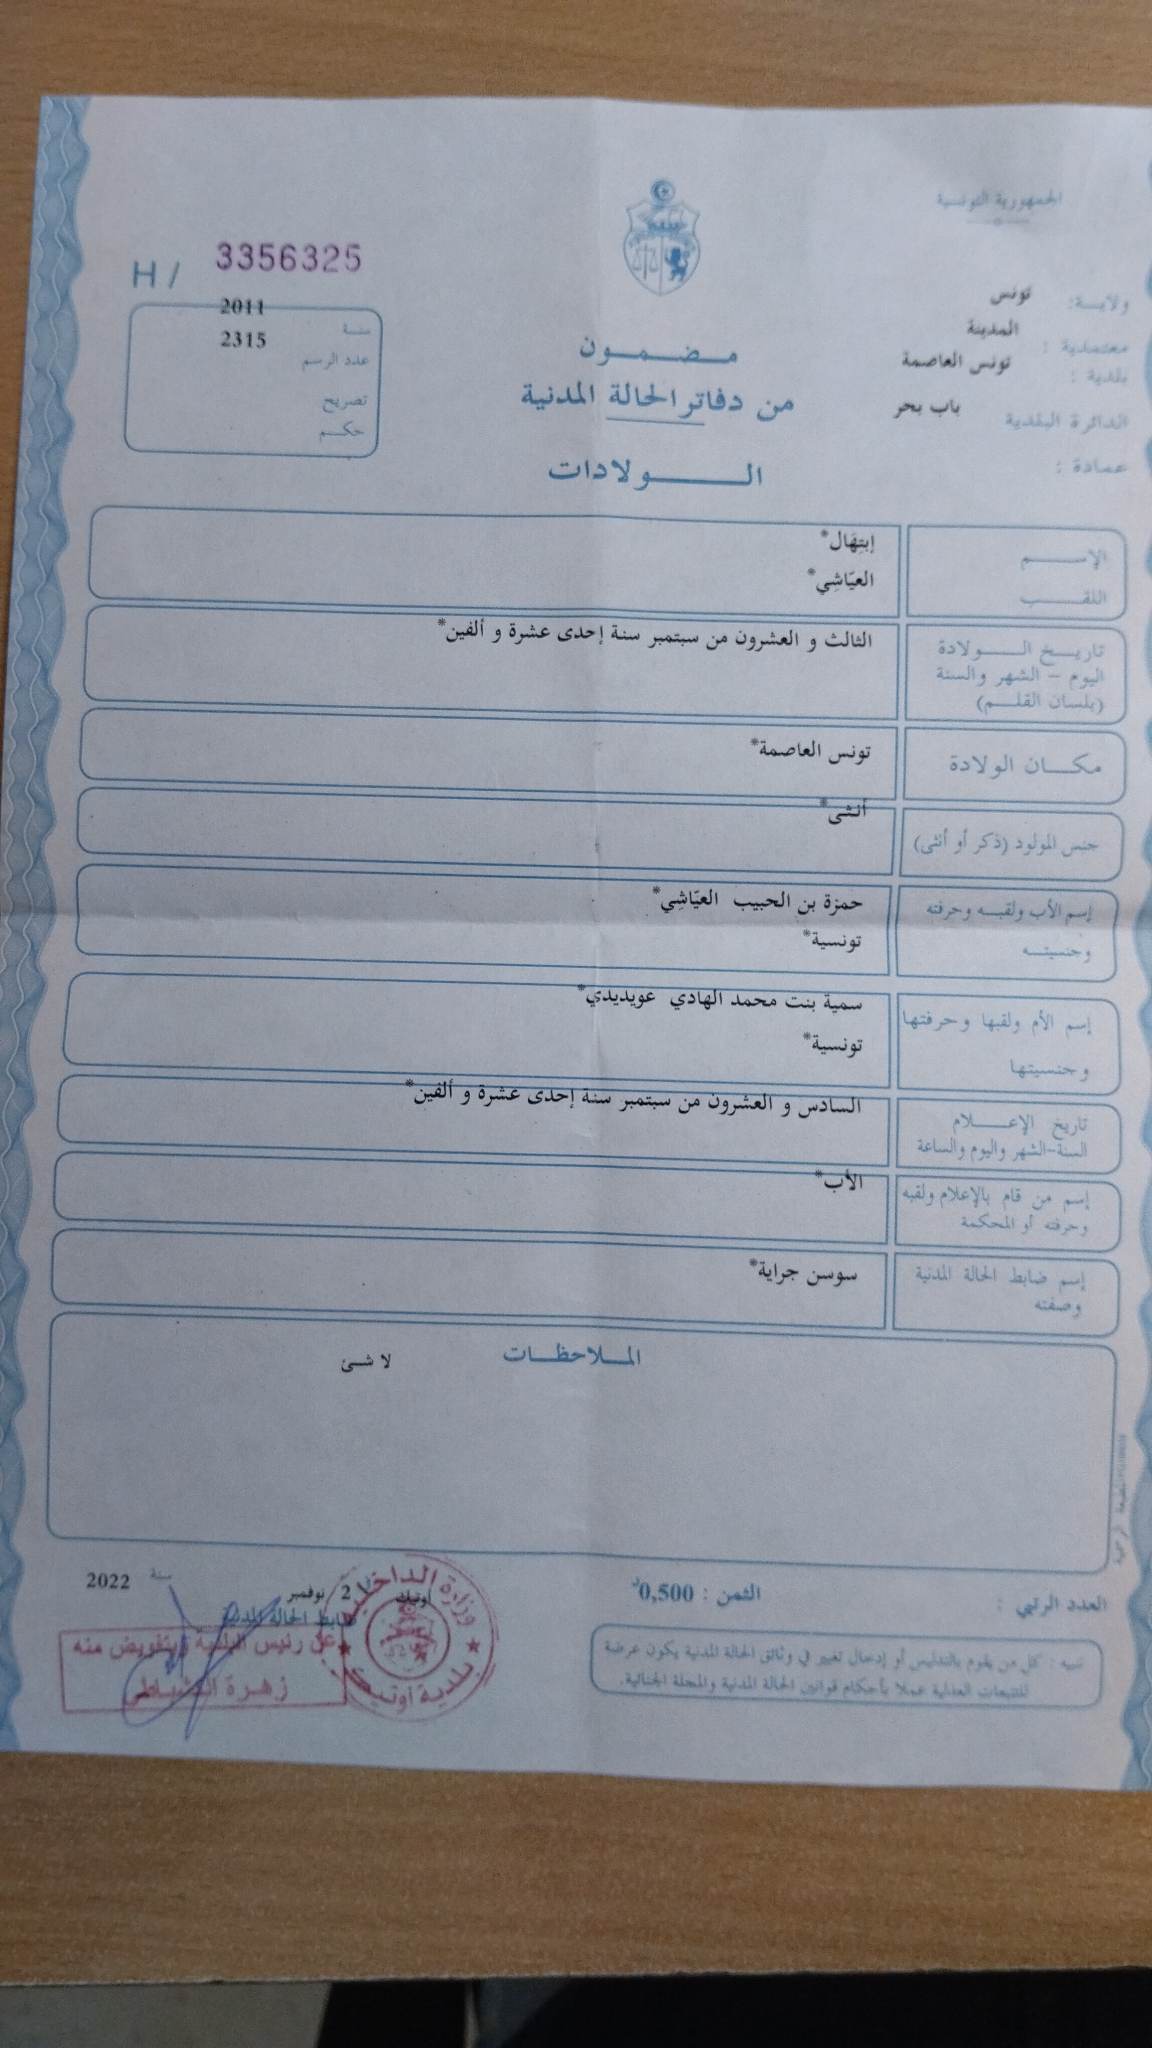 الجمهورية التونسية
H / 3356325
ولاية: تونس
معتمدية : المدينة
بلدية : تونس العاصمة
الدائرة البلدية باب بحر
عمادة :
سنة 2011
عدد الرسم 2315
تصريح
حكم
مضمون
من دفاتر الحالة المدنية
الولادات
الإسم إبتِهَال*
اللقب العيّاشِي*
تاريخ الولادة
اليوم - الشهر والسنة
(بلسان القلم)
الثالث و العشرون من سبتمبر سنة إحدى عشرة و ألفين*
مكان الولادة تونس العاصمة*
جنس المولود (ذكر أو أنثى) أنثى*
إسم الأب ولقبه وحرفته
وجنسيته
حمزة بن الحبيب العيّاشِي*
تونسية*
إسم الأم ولقبها وحرفتها
وجنسيتها
سمية بنت محمد الهادي عويديدي*
تونسية*
تاريخ الإعلام
السنة-الشهر واليوم والساعة
السادس و العشرون من سبتمبر سنة إحدى عشرة و ألفين*
إسم من قام بالإعلام ولقبه
وحرفته أو المحكمة
الأب*
إسم ضابط الحالة المدنية
وصفته
سوسن جراية*
الملاحظات
لا شئ
العدد الرتبي :
الثمن : 0,500د
أوتيك 2 نوفمبر سنة 2022
ضابط الحالة المدنية
عن رئيس البلدية وبتفويض منه
وزارة الداخلية
بلدية أوتيك
تنبيه : كل من يقوم بالتدليس أو إدخال تغيير في وثائق الحالة المدنية يكون عرضة
للتتبعات العدلية عملا بأحكام قوانين الحالة المدنية والمجلة الجنائية.